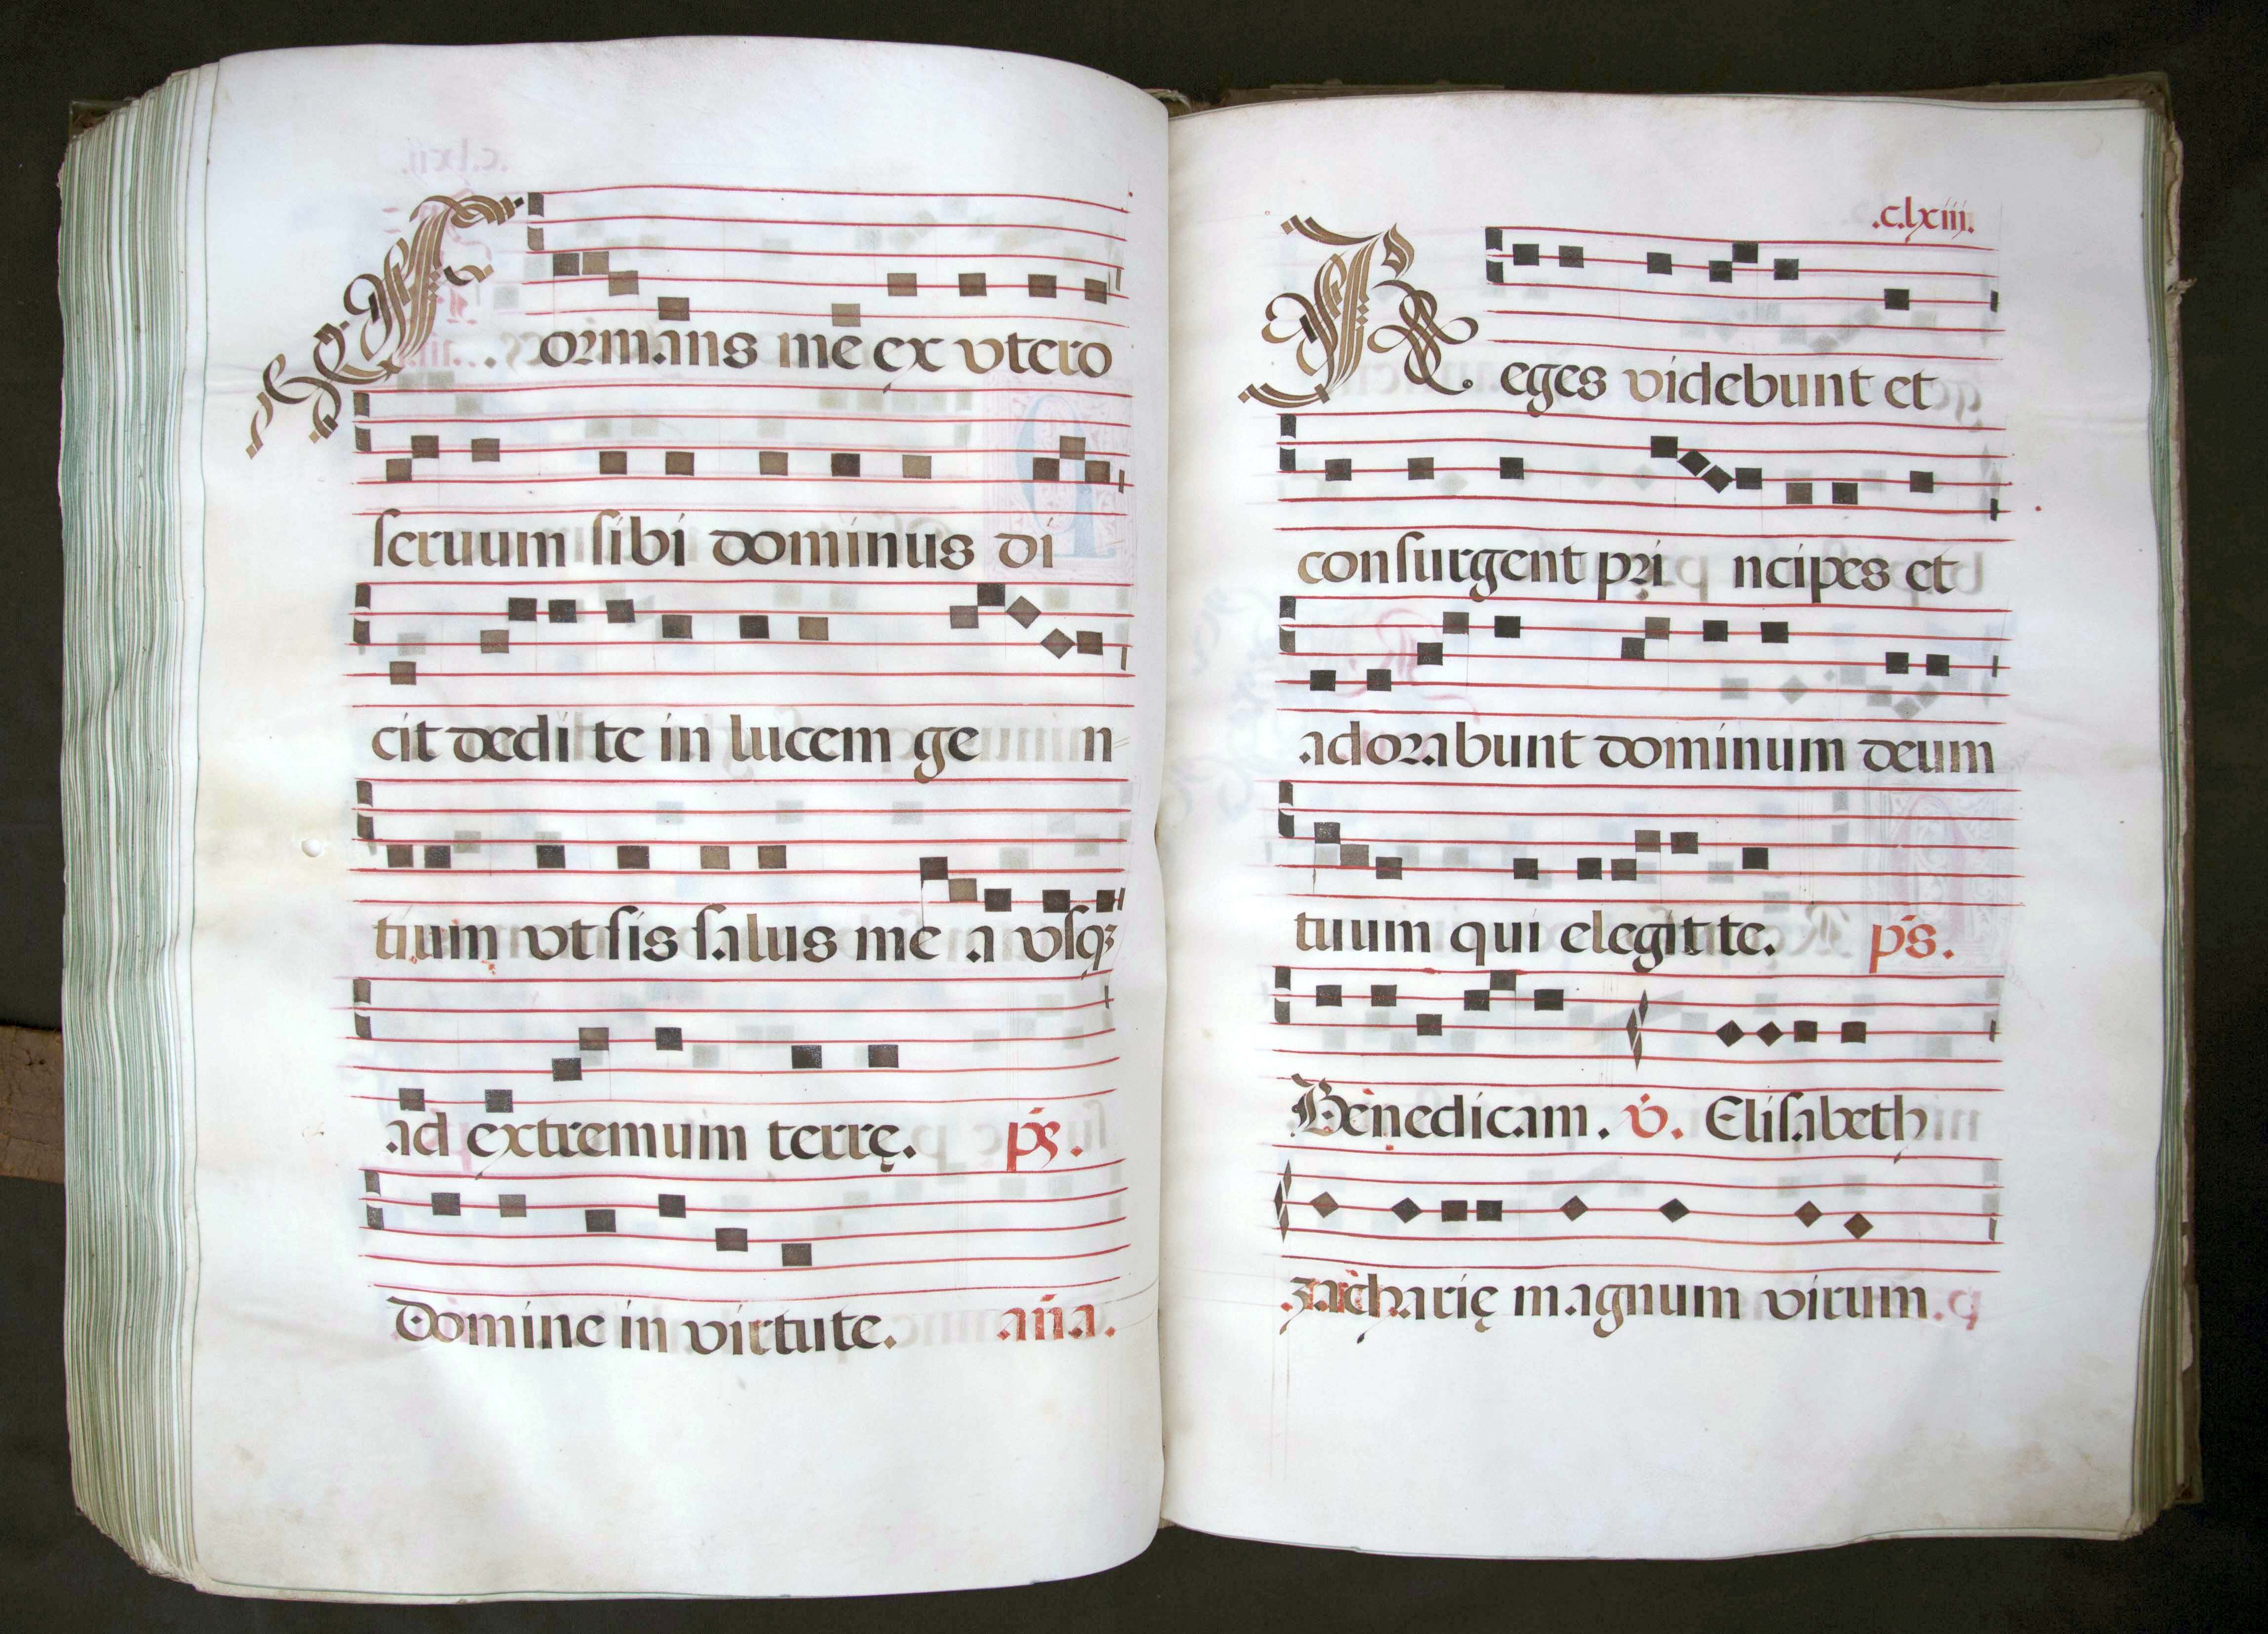 Formans me ex vtero
seruum sibi dominus di
cit dedi te in lucem ge n
tium vt sis salus me a vsqꝫ
ad extremum terrę. ps.
Domine in virtute. aña.
.c.lxiii.
Reges videbunt et
consurgent pri ncipes et
adorabunt dominum deum
tuum qui elegit te. ps.
Benedicam. v̇. Elisabeth
zacharię magnum virum.